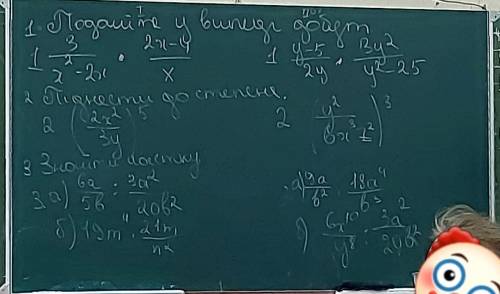 1. Подайте у вигляді добут
1 3/(x² - 2x) · (2x-4)/x    1 (y-5)/2y · 3y²/(y²-25)
2 Піднести до степеня.
2 (2x²/3y)⁵    2 (y²/6x³z²)³
3 Знайти частку
3 а) 6a/5b : 3a²/20b²    а) 9a/b² : 18a⁴/b³
б) 19m⁴ : 21m/n²    3a²/20b²